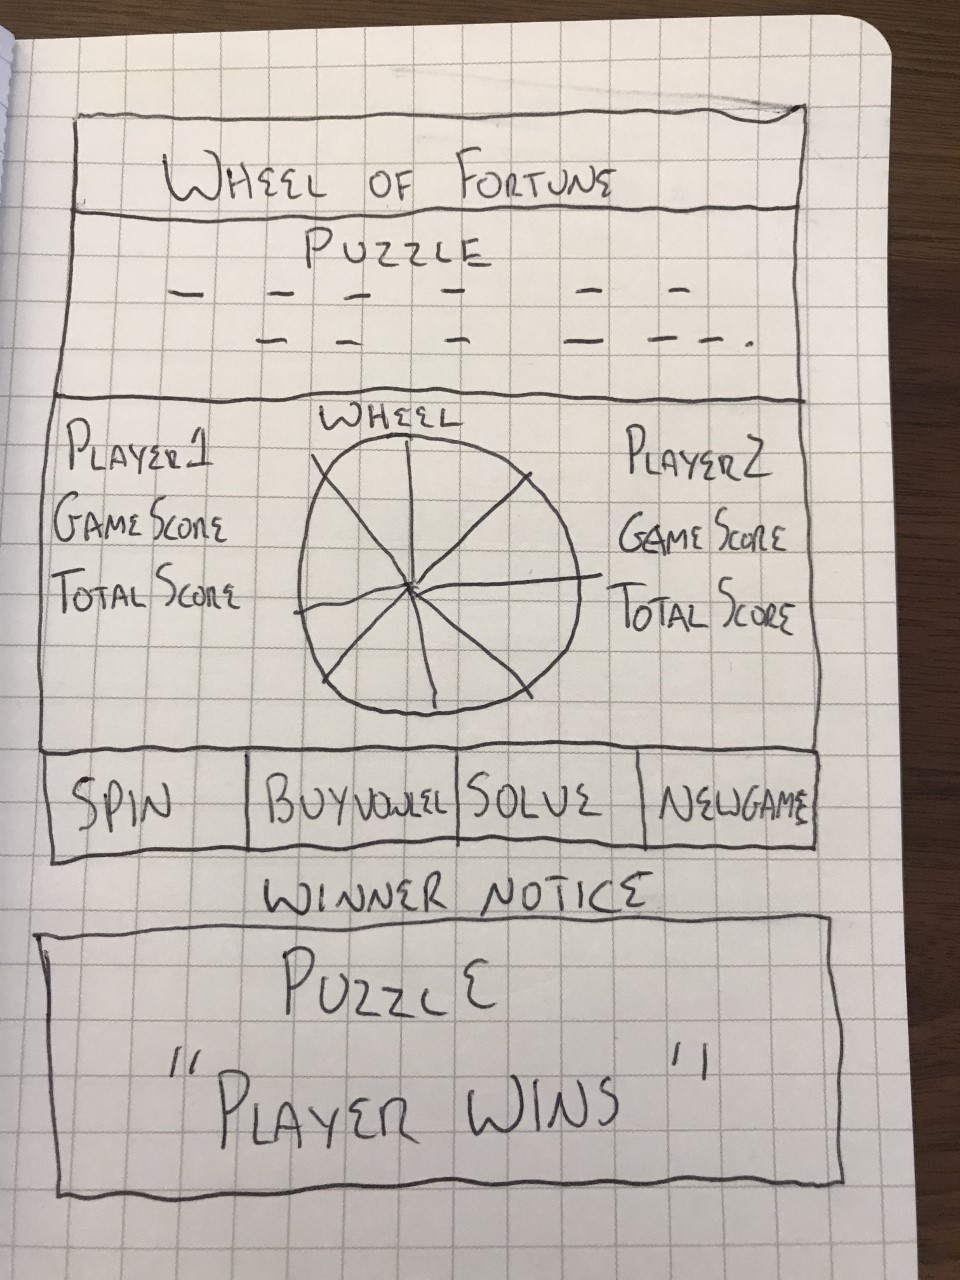 WHEEL OF FORTUNE
PUZZLE
_ _ _ _ _ _
_ _ _ _ _ _ .
WHEEL
PLAYER 1
GAME SCORE
TOTAL SCORE
PLAYER 2
GAME SCORE
TOTAL SCORE
SPIN BUY VOWLEL SOLVE NEW GAME
WINNER NOTICE
PUZZLE
"PLAYER WINS"